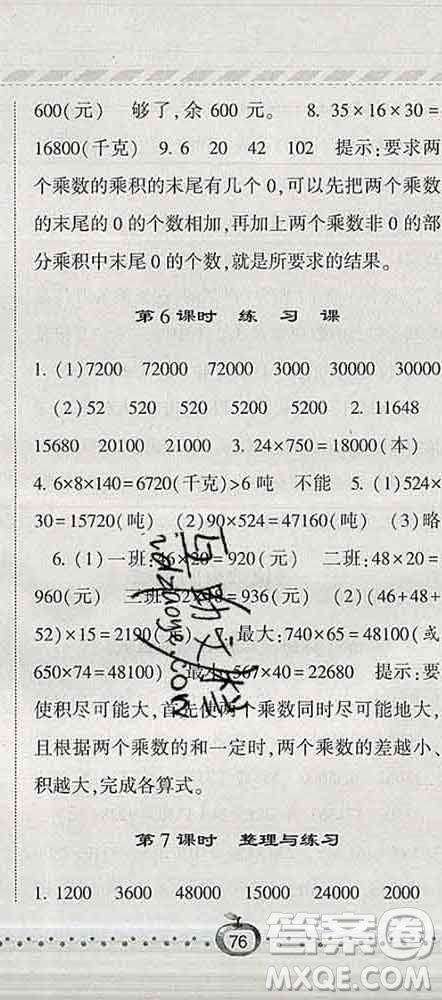 600(元) 够了,余 600 元。 8. 35×16×30=
16800(千克) 9. 6 20 42 102 提示:要求两
个乘数的乘积的末尾有几个 0,可以先把两个乘数
的末尾的 0 的个数相加,再加上两个乘数非 0 的部
分乘积中末尾 0 的个数,就是所要求的结果。
第 6 课时 练 习 课
1. (1)7200 72000 72000 3000 30000 30000
(2)52 520 520 5200 5200 2. 11648
15680 20100 21000 3. 24×750=18000(本)
4. 6×8×140=6720(千克)>6 吨 不能 5. (1)524×
30=15720(吨) (2)90×524=47160(吨) (3)略
6. (1)一班:46×20=920(元) 二班:48×20=
960(元) 三班: ×18=936(元) (2)(46+48+
52)×15=2190(元) 7. 最大:740×65=48100(或
650×74=48100) 最小:567×40=22680 提示:要
使积尽可能大,首先使两个乘数同时尽可能地大,
且根据两个乘数的和一定时,两个乘数的差越小、
积越大,完成各算式。
第 7 课时 整理与练习
1. 1200 3600 48000 15000 24000 2000
76
答案圈
MXQE.COM